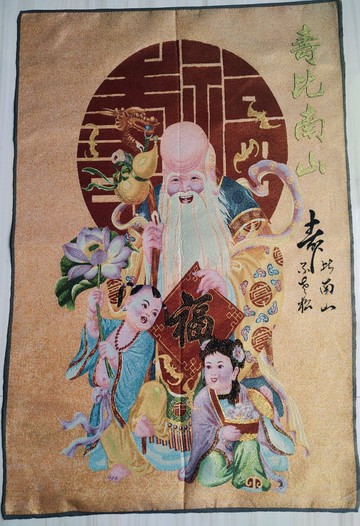 壽比南山
寿
比南山
不老松
福